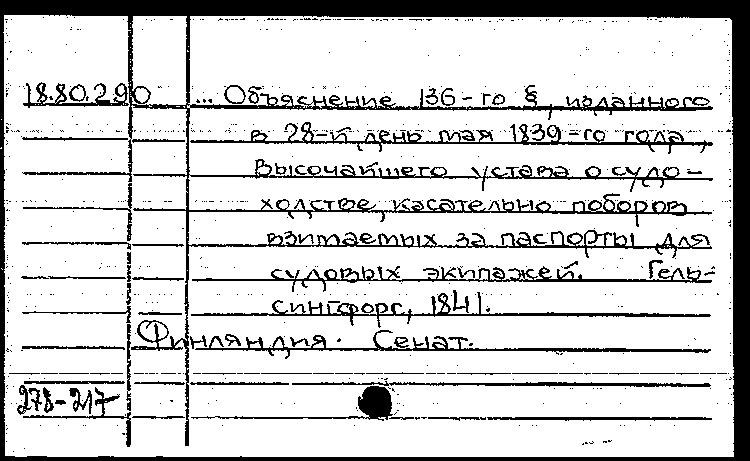 18.80.290 ... Объяснение 136-го §, изданного
в 28-й день мая 1839-го года,
Высочайшего устава о судо-
ходстве, касательно поборов
взимаемых за паспорты для
судовых экипажей. Гель-
сингфорс, 1841.
Финляндия. Сенат.
278-217